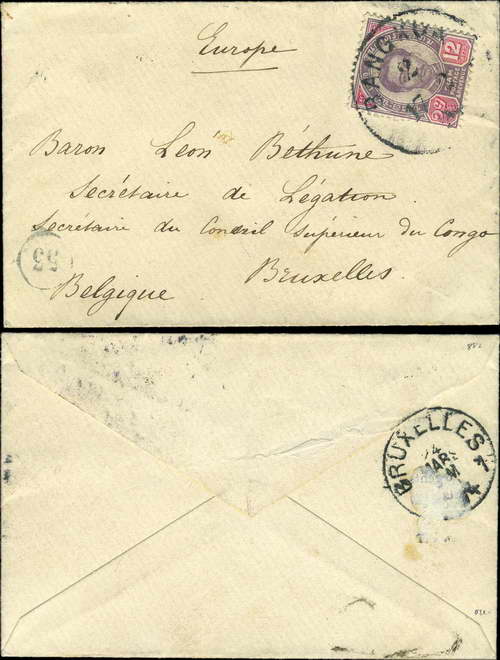 Europe
BANGKOK
12
Baron Léon Béthune
Secrétaire de Légation
Secrétaire du Conseil Supérieur du Congo
53
Bruxelles.
Belgique.
BRUXELLES 1
MARS